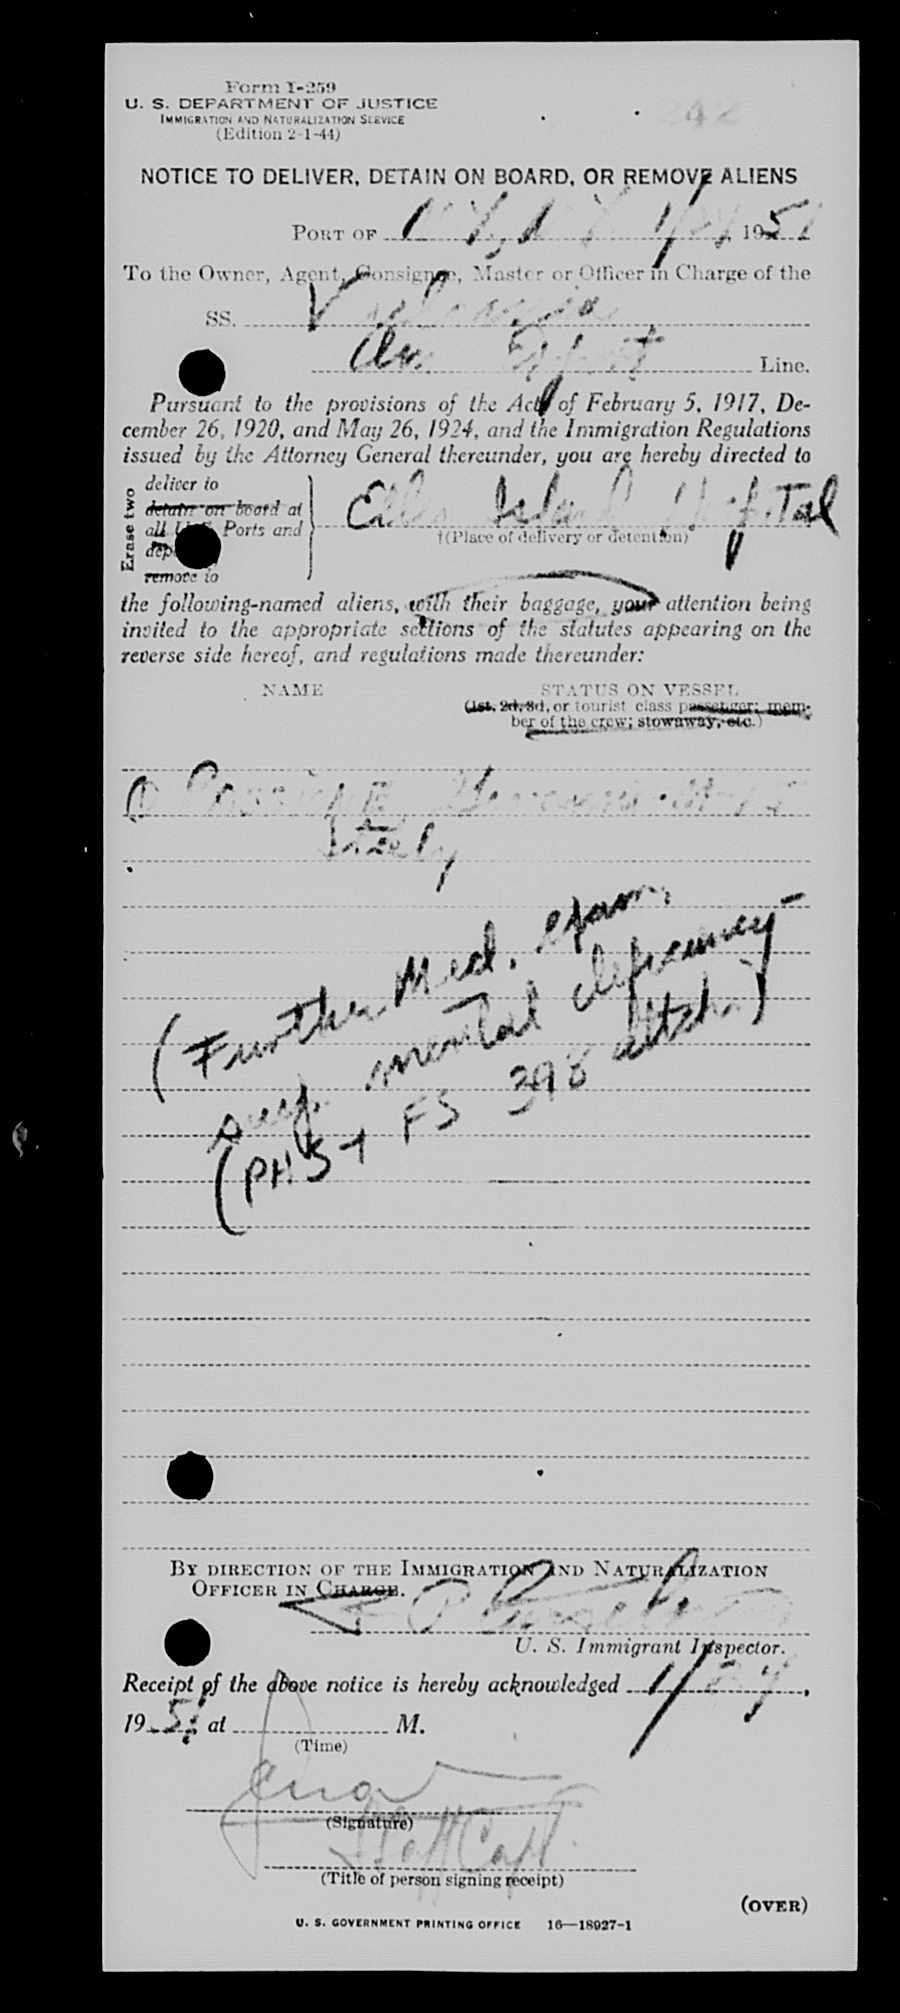 Form I-259
U. S. DEPARTMENT OF JUSTICE
IMMIGRATION AND NATURALIZATION SERVICE
(Edition 2-1-44)
242
NOTICE TO DELIVER, DETAIN ON BOARD, OR REMOVE ALIENS
PORT OF N Y, N Y 1/24, 1951
To the Owner, Agent, Consignee, Master or Officer in Charge of the
SS. Vulcania
Am Export Line.
Pursuant to the provisions of the Acts of February 5, 1917, De-
cember 26, 1920, and May 26, 1924, and the Immigration Regulations
issued by the Attorney General thereunder, you are hereby directed to
Erase two
deliver to
detain on board at
all U. S. Ports and
remove to
Ellis Island Hospital
†(Place of delivery or detention)
the following-named aliens, with their baggage, your attention being
invited to the appropriate sections of the statutes appearing on the
reverse side hereof, and regulations made thereunder:
NAME STATUS ON VESSEL
(1st, 2d, 3d, or tourist class passenger; mem-
ber of the crew; stowaway, etc.)
Italy
(Further Med. exam,
susp. mental deficiency
(PHS + FS 398 attch.)
BY DIRECTION OF THE IMMIGRATION AND NATURALIZATION
OFFICER IN CHARGE.
U. S. Immigrant Inspector.
Receipt of the above notice is hereby acknowledged 1/24,
1951, at M.
(Time)
(Signature)
Staff Capt.
(Title of person signing receipt)
(OVER)
U. S. GOVERNMENT PRINTING OFFICE 16—18927-1